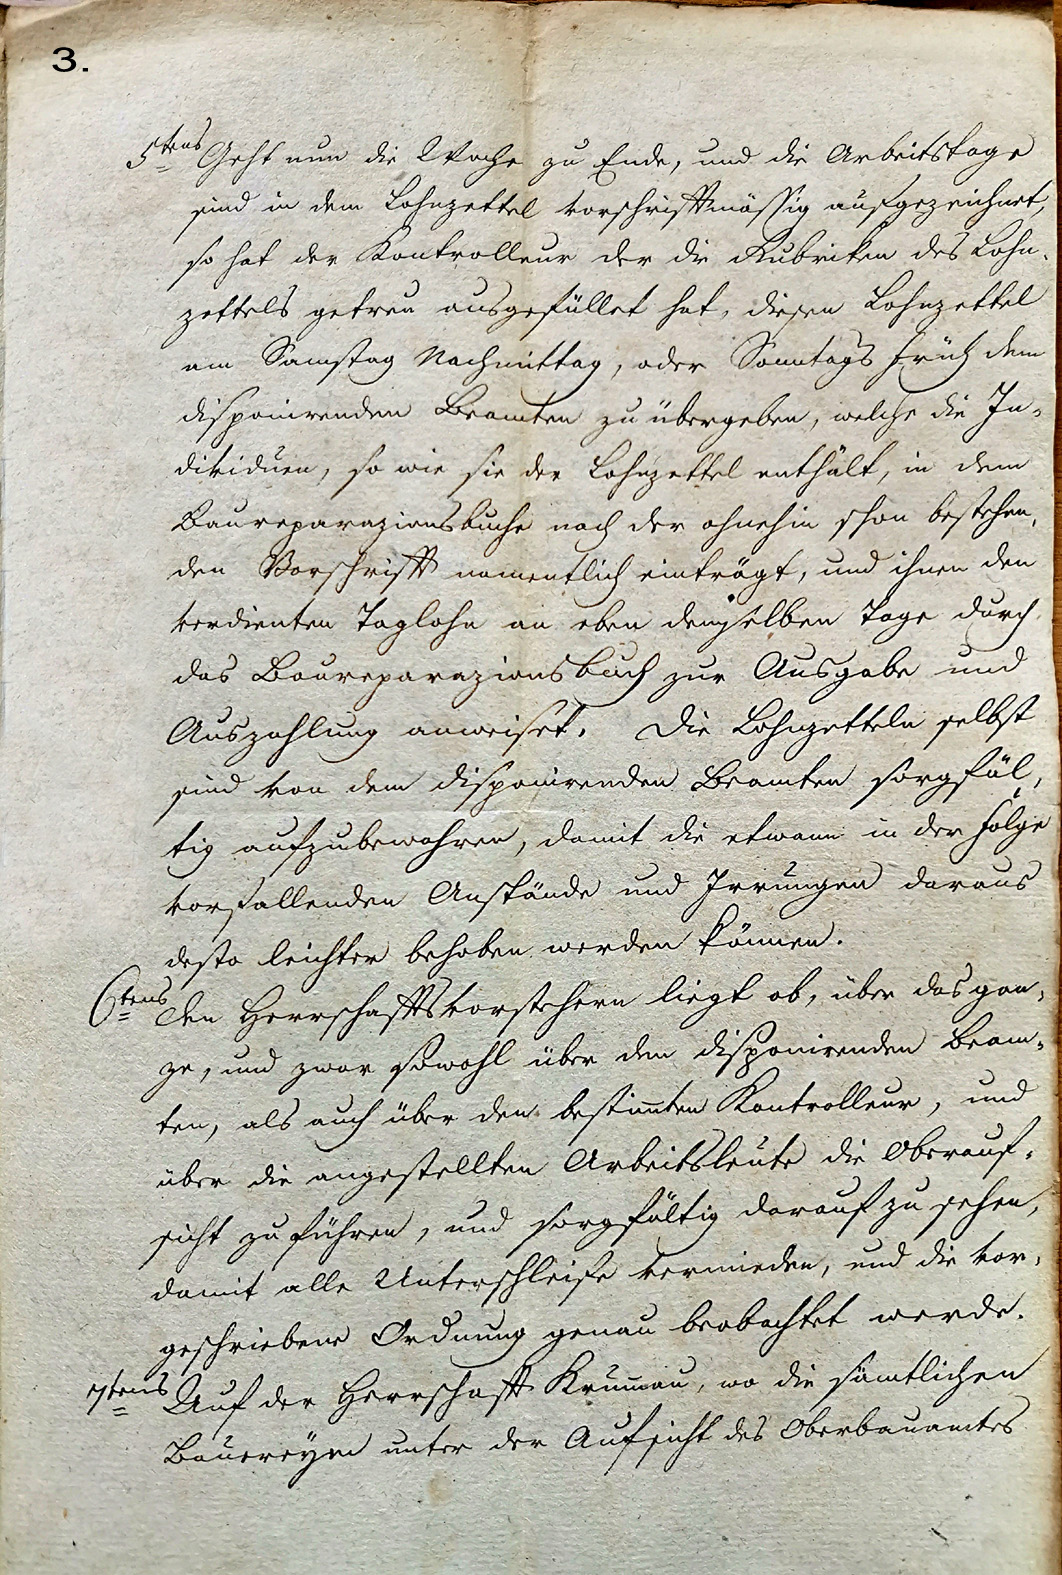 3.
5tens Geht nun die Woche zu Ende, und die Arbeitstage
sind in dem Lohnzettel vorschriftmässig aufgezeichnet,
so hat der Kontrolleur der die Rubriken des Lohn-
zettels getreu ausgefüllet hat, diesen Lohnzettel
am Samstag Nachmittag, oder Sonntags früh dem
disponirenden Beamten zu übergeben, welche die In-
dividuen, so wie sie der Lohnzettel enthält, in dem
Baureparazionsbuche nach der ohnehin schon bestehen,
den Vorschrift namentlich einträgt, und ihnen den
verdienten Taglohn an eben demselben Tage durch
das Baureparazionsbuch zur Ausgabe und
Auszahlung anweiset. Die Lohnzetteln selbst
sind von dem disponirenden Beamten sorgfäl,
tig aufzubewahren, damit die etwann in der Folge
vorfallenden Anstände und Irrungen daraus
desto leichter behoben werden können.
6tens Den Herrschaftsvorstehern liegt ob, über das gan,
ze, und zwar sowohl über den disponirenden Beam-
ten, als auch über den bestim̄ten Kontrolleur, und
über die angestellten Arbeitsleute die Oberauf-
sicht zu führen, und sorgfältig darauf zu sehen,
damit alle Unterschleife vermieden, und die vor,
geschriebene Ordnung genau beobachtet werde.
7tens Auf der Herrschaft Krum̄au, wo die sämtlichen
Bauereyen unter der Aufsicht des Oberbauamtes